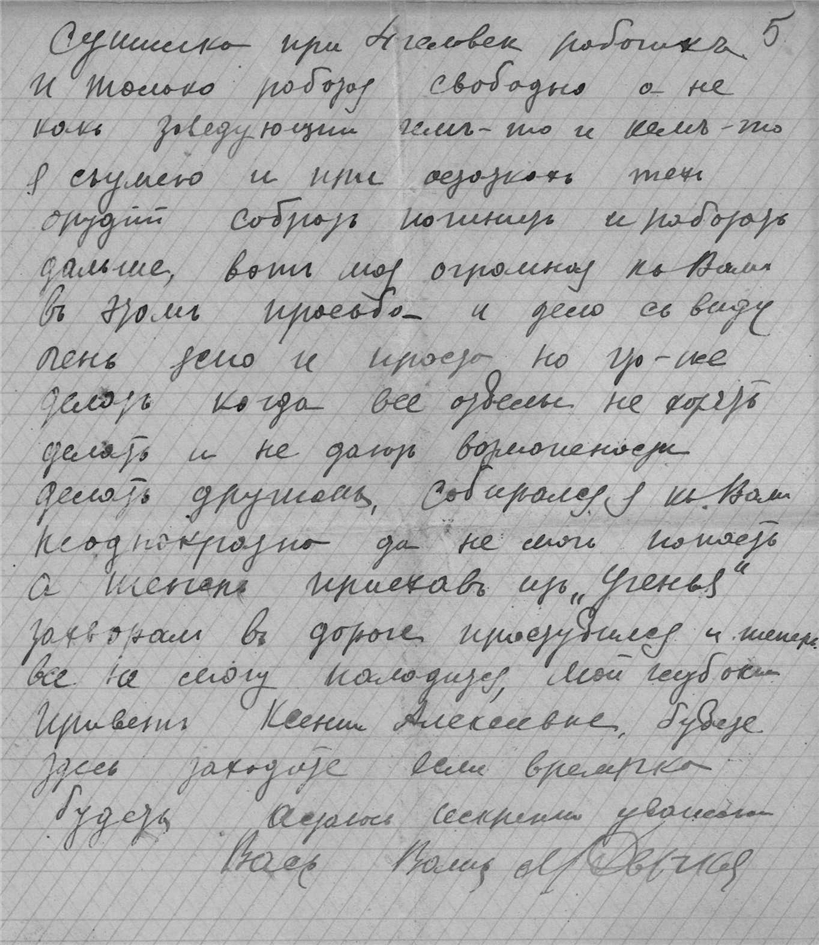 Сушилка при 4 человек работих 5
и только работая свободно а не
какъ заведующий чемъ-то и кемъ-то
я съумею и при остаткахъ техъ
орудій собрать починить и работать
дальше, вотъ моя огромная къ Вамъ
въ этомъ просьба и дело съ виду
очень ясно и просто но что-же
делать когда все отделы не хотятъ
делать и не даютъ возможности
делать другимъ, собирался я къ Вамъ
неоднократно да не могъ попасть
а теперь приехавъ изъ „Ученья"
захворал въ дороге простудился и теперь
все не могу наладится, мой глубоки
приветъ Ксении Алексеевне, будете
здесь заходите если времячко
будетъ Астаюсь искренно уважаю
Васъ Вашъ